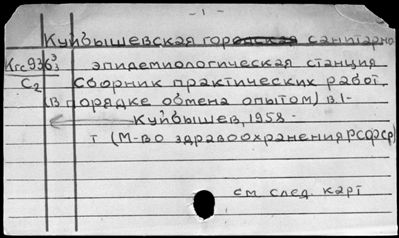 - 1 -
Куйбышевская городская санитарно
Кгс9363 эпидемиологическая станция
С2 Сборник практических работ.
(в порядке обмена опытом) в.1-
Куйбышев, 1958.
т (М-во здравоохранения РСФСР)
см след. карт